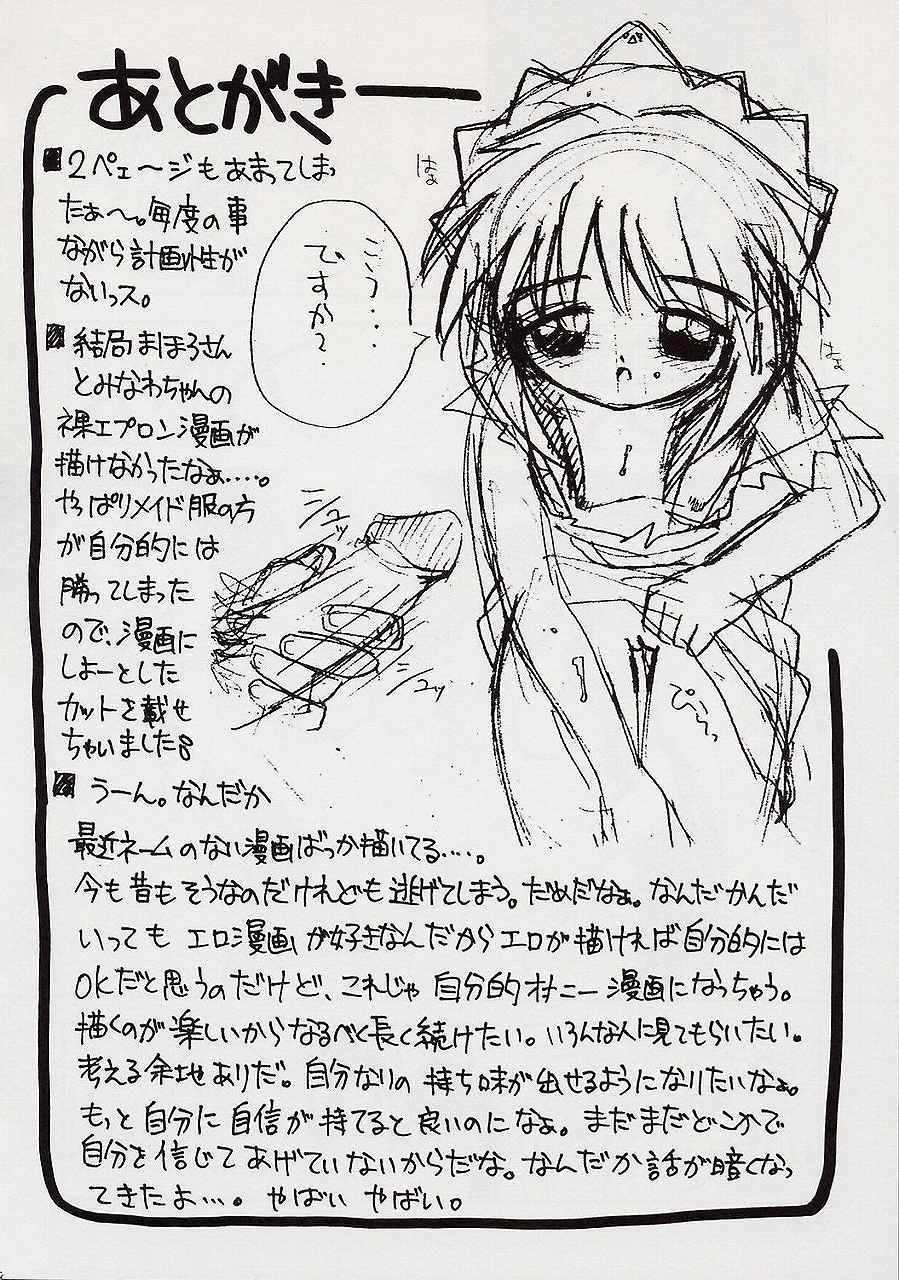 あとがきー
■2ページもあまってしまっ
たぁ〜。毎度の事
ながら計画性が
ないっス。
■結局まほろさん
とみなわちゃんの
裸エプロン漫画が
描けなかったなぁ‥‥。
やっぱりメイド服の方
が自分的には
勝ってしまった
ので、漫画に
しよーとした
カットを載せ
ちゃいました
■うーん。なんだか
最近ネームのない漫画ばっか描いてる‥‥。
今も昔もそうなのだけれども逃げてしまう。だめだなぁ。なんだかんだ
いっても エロ漫画が好きなんだからエロが描ければ自分的には
OKだと思うのだけど、これじゃ自分的オナニー漫画になっちゃう。
描くのが楽しいからなるべく長く続けたい。いろんな人に見てもらいたい。
考える余地ありだ。自分なりの持ち味が出せるようになりたいなぁ。
もっと自分に自信が持てると良いのになぁ。まだまだどこかで
自分を信じてあげていないからだな。なんだか話が暗くなっ
てきたよ…。やばい やばい。
こう‥
ですか?
はぁ
はぁ
シュッ
シュッ